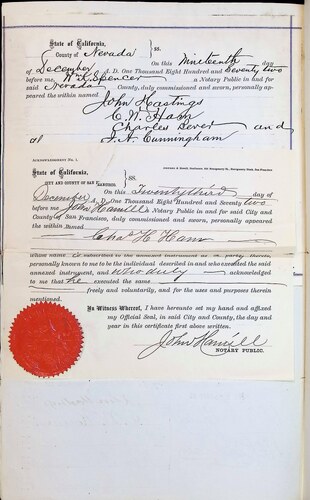 State of California,
County of Nevada } ss.
On this Nineteenth day
of December A. D. One Thousand Eight Hundred and Seventy two
before me, Spencer a Notary Public in and for
said Nevada County, duly commissioned and sworn, personally ap-
peared the within named
John Hastings
C. W. Ham
Charles and
J. A. Cunningham
ACKNOWLEDGMENT No. 1.
State of California,
CITY AND COUNTY OF SAN FRANCISCO } ss.
On this Twenty third day of
December A. D. One Thousand Eight Hundred and Seventy two
before me, John Hamill a Notary Public in and for said City and
County of San Francisco, duly commissioned and sworn, personally appeared
the within named
Chas H. Ham
whose name is subscribed to the annexed instrument as a party thereto,
personally known to me to be the individual described in and who executed the said
annexed instrument, and who duly acknowledged
to me that he executed the same
freely and voluntarily, and for the uses and purposes therein
mentioned.
In Witness Whereof, I have hereunto set my hand and affixed
my Official Seal, in said City and County, the day and
year in this certificate first above written.
John Hamill
NOTARY PUBLIC.